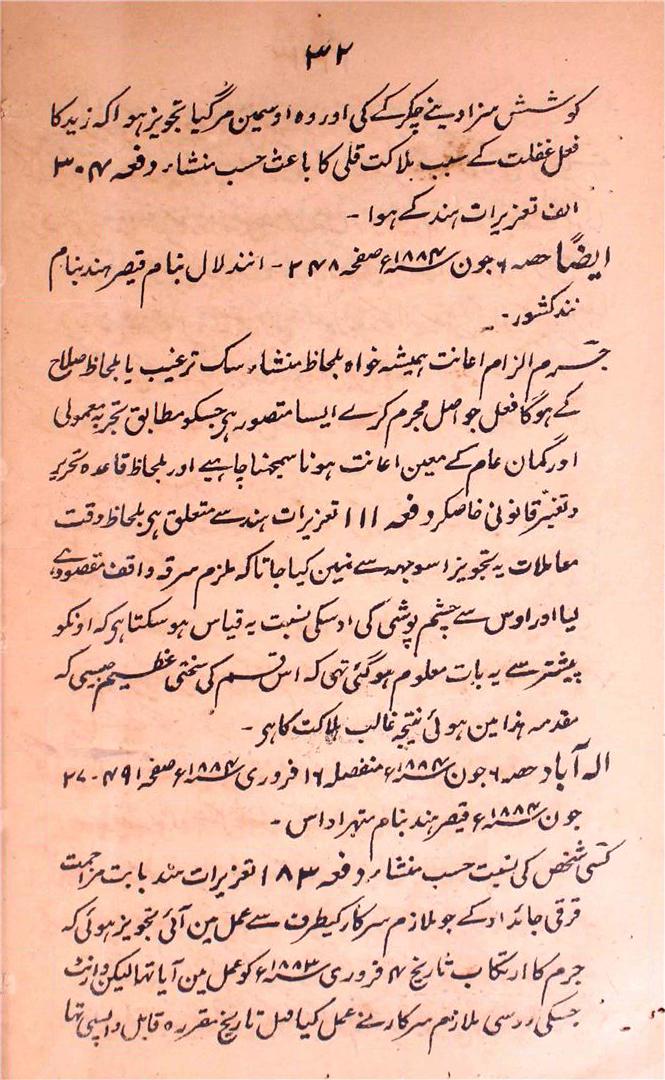 ۳۲
کوشش سزا دینے چکر کے کی اور وہ اوسمین مرگیا تجویز ہوا کہ زید کا
فعل غفلت کے سبب ہلاکت قلی کا باعث حسب منشاء دفعہ ۳۰۴
الف تعزیرات ہند کے ہوا ۔
ایضًا حصہ ۶ جون ۱۸۸۴؁ء صفحہ ۲۴۸ ۔ انند لال بنام قیصر ہند بنام
نند کشور ۔
جرم الزام اعانت ہمیشہ خواہ بلحاظ منشاء سک ترغیب یا بلحاظ صلاح
کے ہوگا فعل جو اصل مجرم کرے ایسا متصور ہی جسکو مطابق تجربہ معمولی
اور گمان عام کے معین اعانت ہونا سمجہنا چاہیے اور بلحاظ قاعدہ تحریر
و تغیّر قانونی خاصکر دفعہ ۱۱۱ تعزیرات ہند سے متعلق ہی بلحاظ دقت
معاملات یہ تجویز اسوجہہ سے نہین کیا جاتا کہ ملزم سرقہ واقف مقصود
لیا اور اوس سے چشم پوشی کی اوسکی نسبت یہ قیاس ہو سکتا ہی کہ اونکو
پیشتر سے یہ بات معلوم ہوگئی تہی کہ اس قسم کی سختی عظیم جیسی کہ
مقدمہ ہذا مین ہوئی نتیجہ غالب ہلاکت کا ہی ۔
الہ آباد حصہ ۶ جون ۱۸۸۴؁ء منفصلہ ۱۶ فروری ۱۸۸۴؁ء صفحہ ۴۹۱ ۔ ۲۷
جون ۱۸۸۴؁ء قیصر ہند بنام متہرا داس ۔
کسی شخص کی نسبت حسب منشاء دفعہ ۱۸۳ تعزیرات ہند بابت مزاحمت
قرقی جائداد کے جو ملازم سرکار کیطرف سے عمل مین آئی تجویز ہوئی کہ
جرم کا ارتکاب تاریخ ۴ فروری ۱۸۸۳؁ء کو عمل مین آیا تہا لیکن وارنٹ
جسکی رو سی ملازم سرکار نے عمل کیا قبل تاریخ مقررہ قابل واپسی تہا